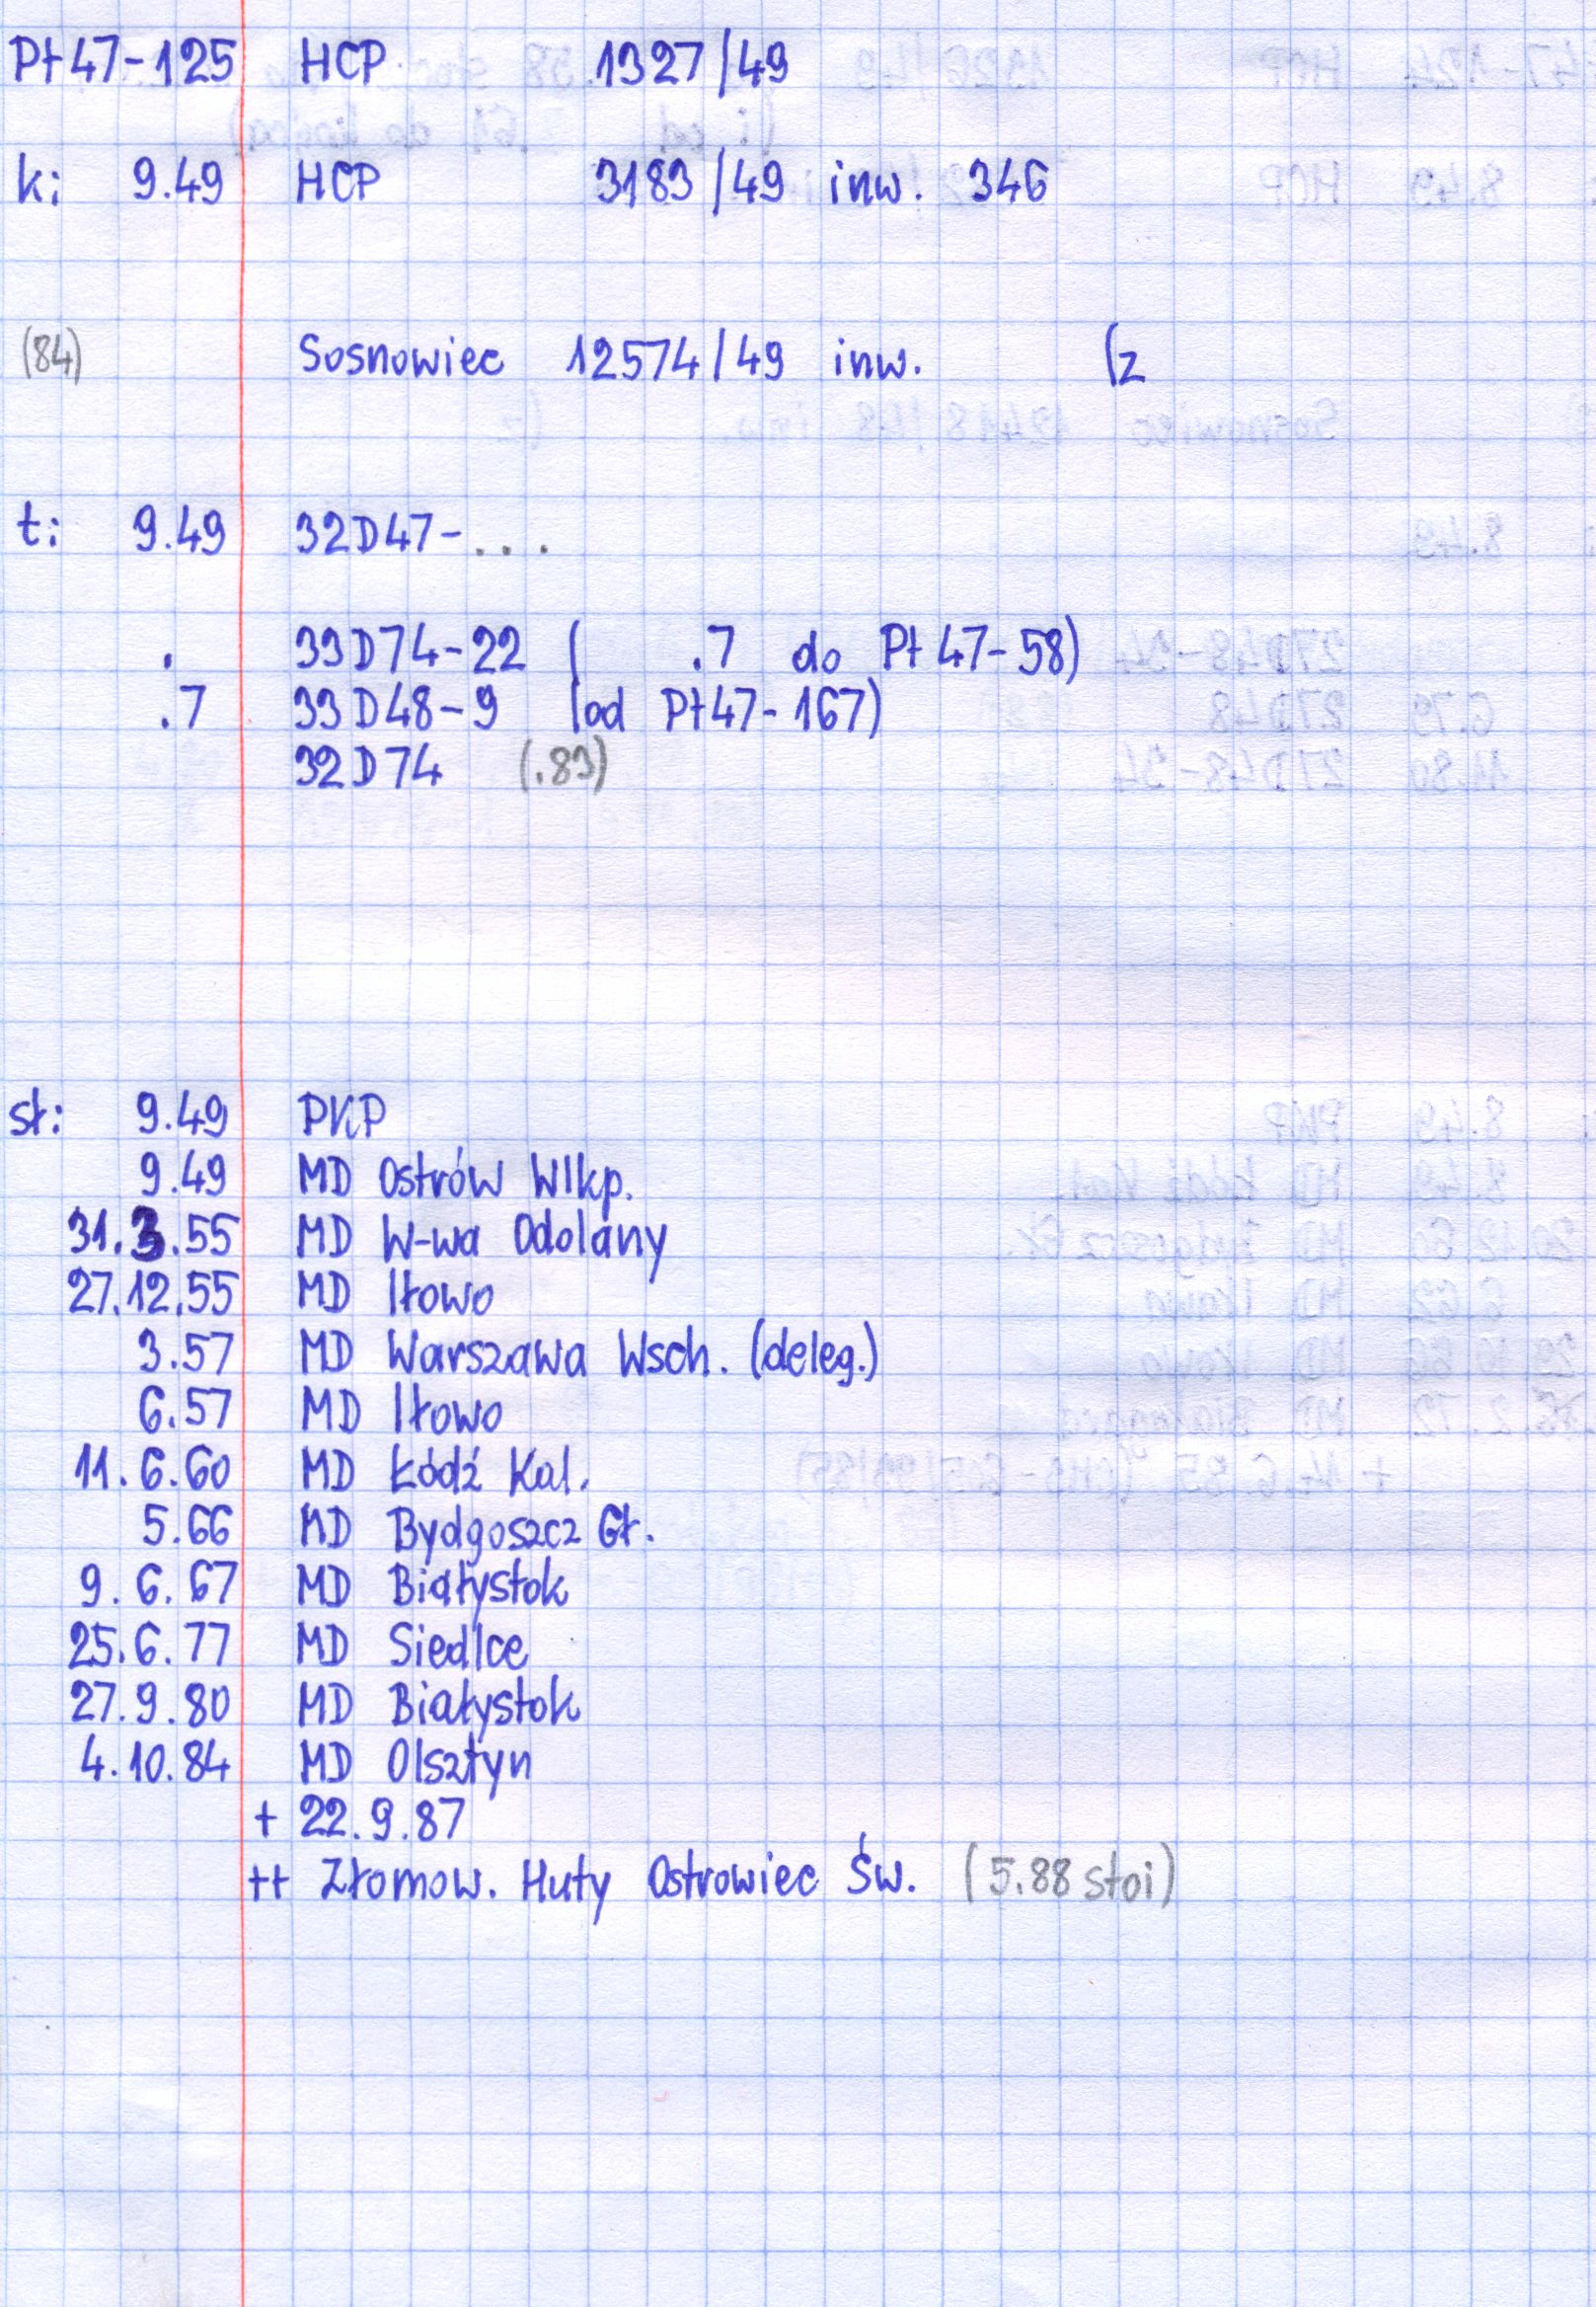 Pt47-125 HCP 1327/49
k: 9.49 HCP 3183/49 inw. 346
(84) Sosnowiec 12574/49 inw. (z
t: 9.49 32D47-...
. 33D74-22 ( .7 do Pt47-58)
.7 33D48-9 (od Pt47-167)
32D74 (.83)
st: 9.49 PKP
9.49 MD Ostrów Wlkp.
31.3.55 MD W-wa Odolany
27.12.55 MD Iłowo
3.57 MD Warszawa Wsch. (deleg.)
6.57 MD Iłowo
11.6.60 MD Łódź Kal.
5.66 MD Bydgoszcz Gł.
9.6.67 MD Białystok
25.6.77 MD Siedlce
27.9.80 MD Białystok
4.10.84 MD Olsztyn
+ 22.9.87
++ Złomow. Huty Ostrowiec Św. (5.88 stoi)